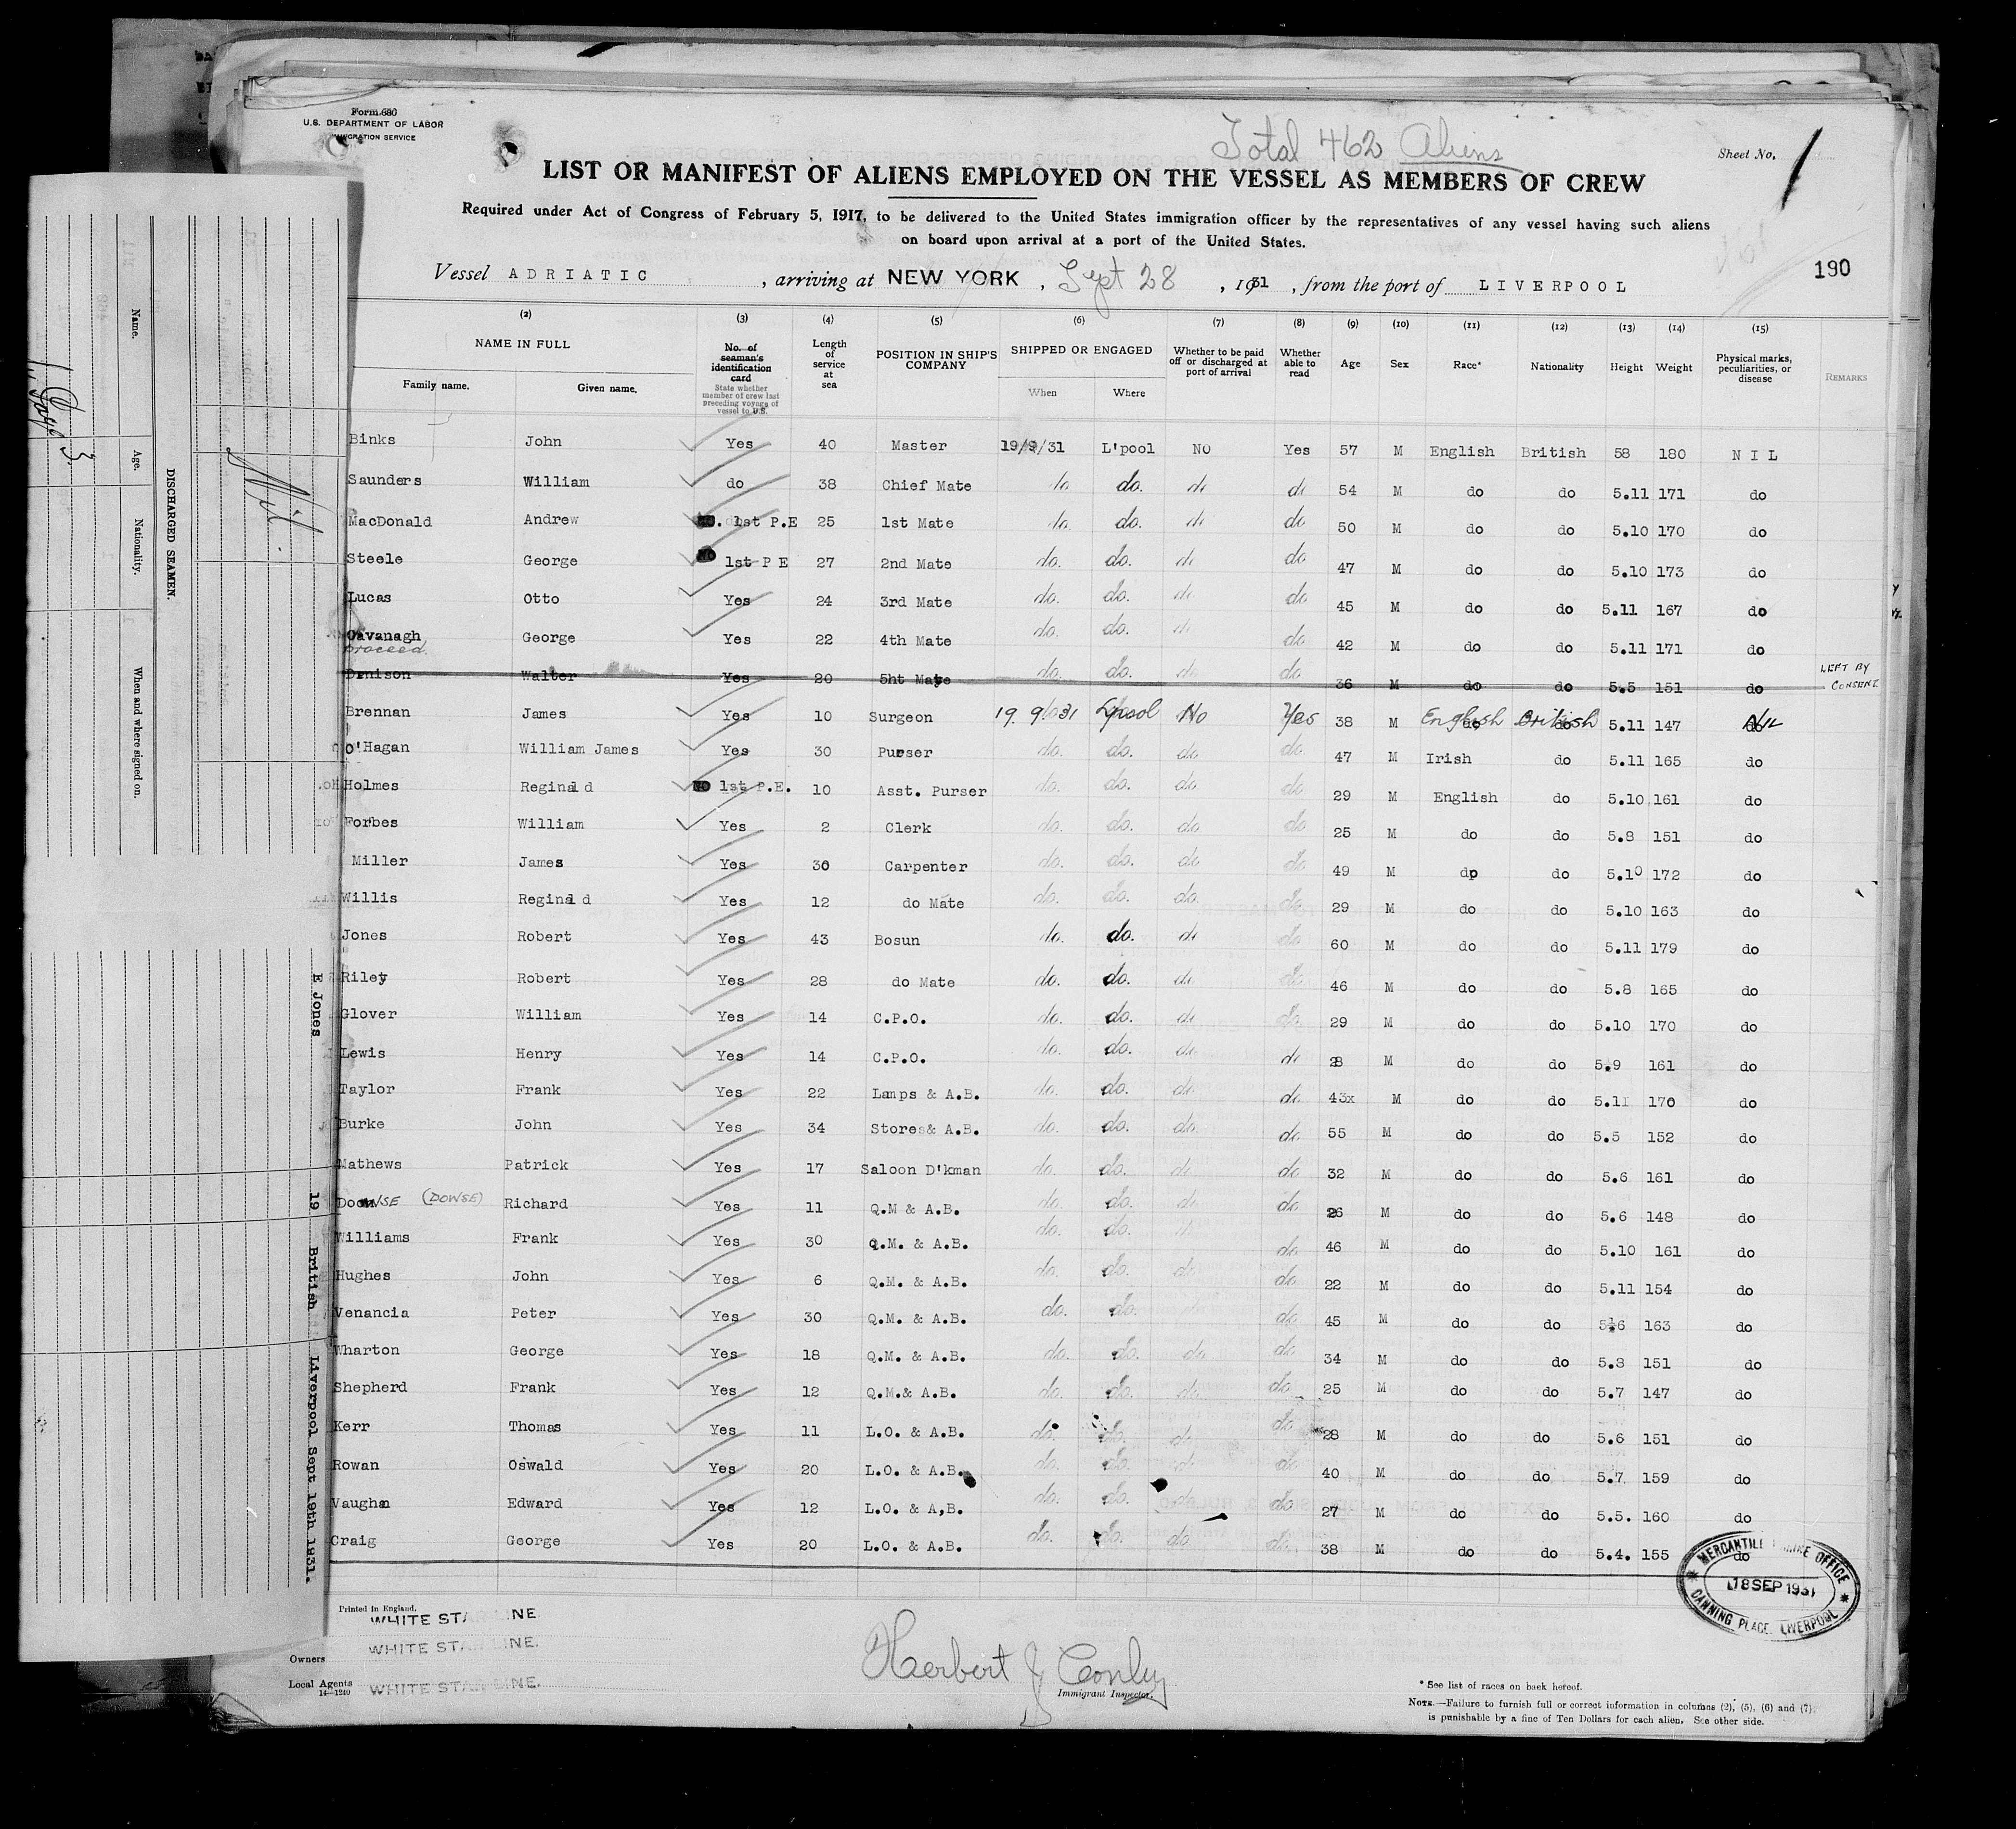 Form 680
U.S. DEPARTMENT OF LABOR
IMMIGRATION SERVICE
Total 462 Aliens
Sheet No. 1
LIST OR MANIFEST OF ALIENS EMPLOYED ON THE VESSEL AS MEMBERS OF CREW
Required under Act of Congress of February 5, 1917, to be delivered to the United States immigration officer by the representatives of any vessel having such aliens
on board upon arrival at a port of the United States.
190
Vessel ADRIATIC, arriving at NEW YORK, Sept 28, 1931, from the port of LIVERPOOL
(2) (3) (4) (5) (6) (7) (8) (9) (10) (11) (12) (13) (14) (15)
NAME IN FULL
Family name. Given name.
No. of seaman's identification card
State whether member of crew last preceding voyage of vessel to U.S.
Length of service at sea
POSITION IN SHIP'S COMPANY
SHIPPED OR ENGAGED
When Where
Whether to be paid off or discharged at port of arrival
Whether able to read
Age Sex Race* Nationality Height Weight
Physical marks, peculiarities, or disease
REMARKS
Binks John Yes 40 Master 19/9/31 L'pool NO Yes 57 M English British 58 180 NIL
Saunders William do 38 Chief Mate do do. do do 54 M do do 5.11 171 do
MacDonald Andrew 1st P.E 25 1st Mate do. do. do do 50 M do do 5.10 170 do
Steele George NO 1st P E 27 2nd Mate do. do. do do 47 M do do 5.10 173 do
Lucas Otto Yes 24 3rd Mate do. do. do do 45 M do do 5.11 167 do
Cavanagh George Yes 22 4th Mate do. do. do do 42 M do do 5.11 171 do
proceed.
Denison Walter Yes 20 5ht Mate do. do. do do 36 M do do 5.5 151 do LEFT BY CONSENT
Brennan James Yes 10 Surgeon 19.9.31 Lpool No Yes 38 M English British 5.11 147 NIL
O'Hagan William James Yes 30 Purser do. do. do do 47 M Irish do 5.11 165 do
Holmes Reginald NO 1st P.E. 10 Asst. Purser do. do. do do 29 M English do 5.10 161 do
Forbes William Yes 2 Clerk do. do. do do 25 M do do 5.8 151 do
Miller James Yes 30 Carpenter do. do. do do 49 M do do 5.10 172 do
Willis Reginald Yes 12 do Mate do. do. do. do 29 M do do 5.10 163 do
Jones Robert Yes 43 Bosun do. do. do do 60 M do do 5.11 179 do
Riley Robert Yes 28 do Mate do. do. do do 46 M do do 5.8 165 do
Glover William Yes 14 C.P.O. do. do. do do 29 M do do 5.10 170 do
Lewis Henry Yes 14 C.P.O. do. do. do do 28 M do do 5.9 161 do
Taylor Frank Yes 22 Lamps & A.B. do. do. do. do 43x M do do 5.11 170 do
Burke John Yes 34 Stores& A.B. do. do. do. do 55 M do do 5.5 152 do
Mathews Patrick Yes 17 Saloon D'kman do. do. do do 32 M do do 5.6 161 do
DOWSE (DOWSE) Richard Yes 11 Q.M & A.B. do. do. do do 26 M do do 5.6 148 do
Williams Frank Yes 30 Q.M. & A.B. do. do. do do 46 M do do 5.10 161 do
Hughes John Yes 6 Q.M. & A.B. do. do. do do 22 M do do 5.11 154 do
Venancia Peter Yes 30 Q.M. & A.B. do. do. do 45 M do do 5.6 163 do
Wharton George Yes 18 Q.M. & A.B. do. do. do do 34 M do do 5.8 151 do
Shepherd Frank Yes 12 Q.M.& A.B. do. do. do. do 25 M do do 5.7 147 do
Kerr Thomas Yes 11 L.O. & A.B. do. do. do. do 28 M do do 5.6 151 do
Rowan Oswald Yes 20 L.O. & A.B. do. do. do do 40 M do do 5.7 159 do
Vaughan Edward Yes 12 L.O. & A,B. do. do. do. do. 27 M do do 5.5. 160 do
Craig George Yes 20 L.O. & A.B. do. do. do. do. 38 M do do 5.4. 155 do
MERCANTILE MARINE OFFICE
18 SEP 1931
CANNING PLACE. LIVERPOOL
Printed in England.
WHITE STAR LINE
WHITE STAR LINE.
Owners
Local Agents WHITE STAR LINE.
14—1240
Herbert J Conley
Immigrant Inspector.
* See list of races on back hereof.
NOTE.—Failure to furnish full or correct information in columns (2), (5), (6) and (7),
is punishable by a fine of Ten Dollars for each alien. See other side.
DISCHARGED SEAMEN.
Name. Age. Nationality. When and where signed on.
Nil.
E Jones 19 British Liverpool Sept 19th 1931.